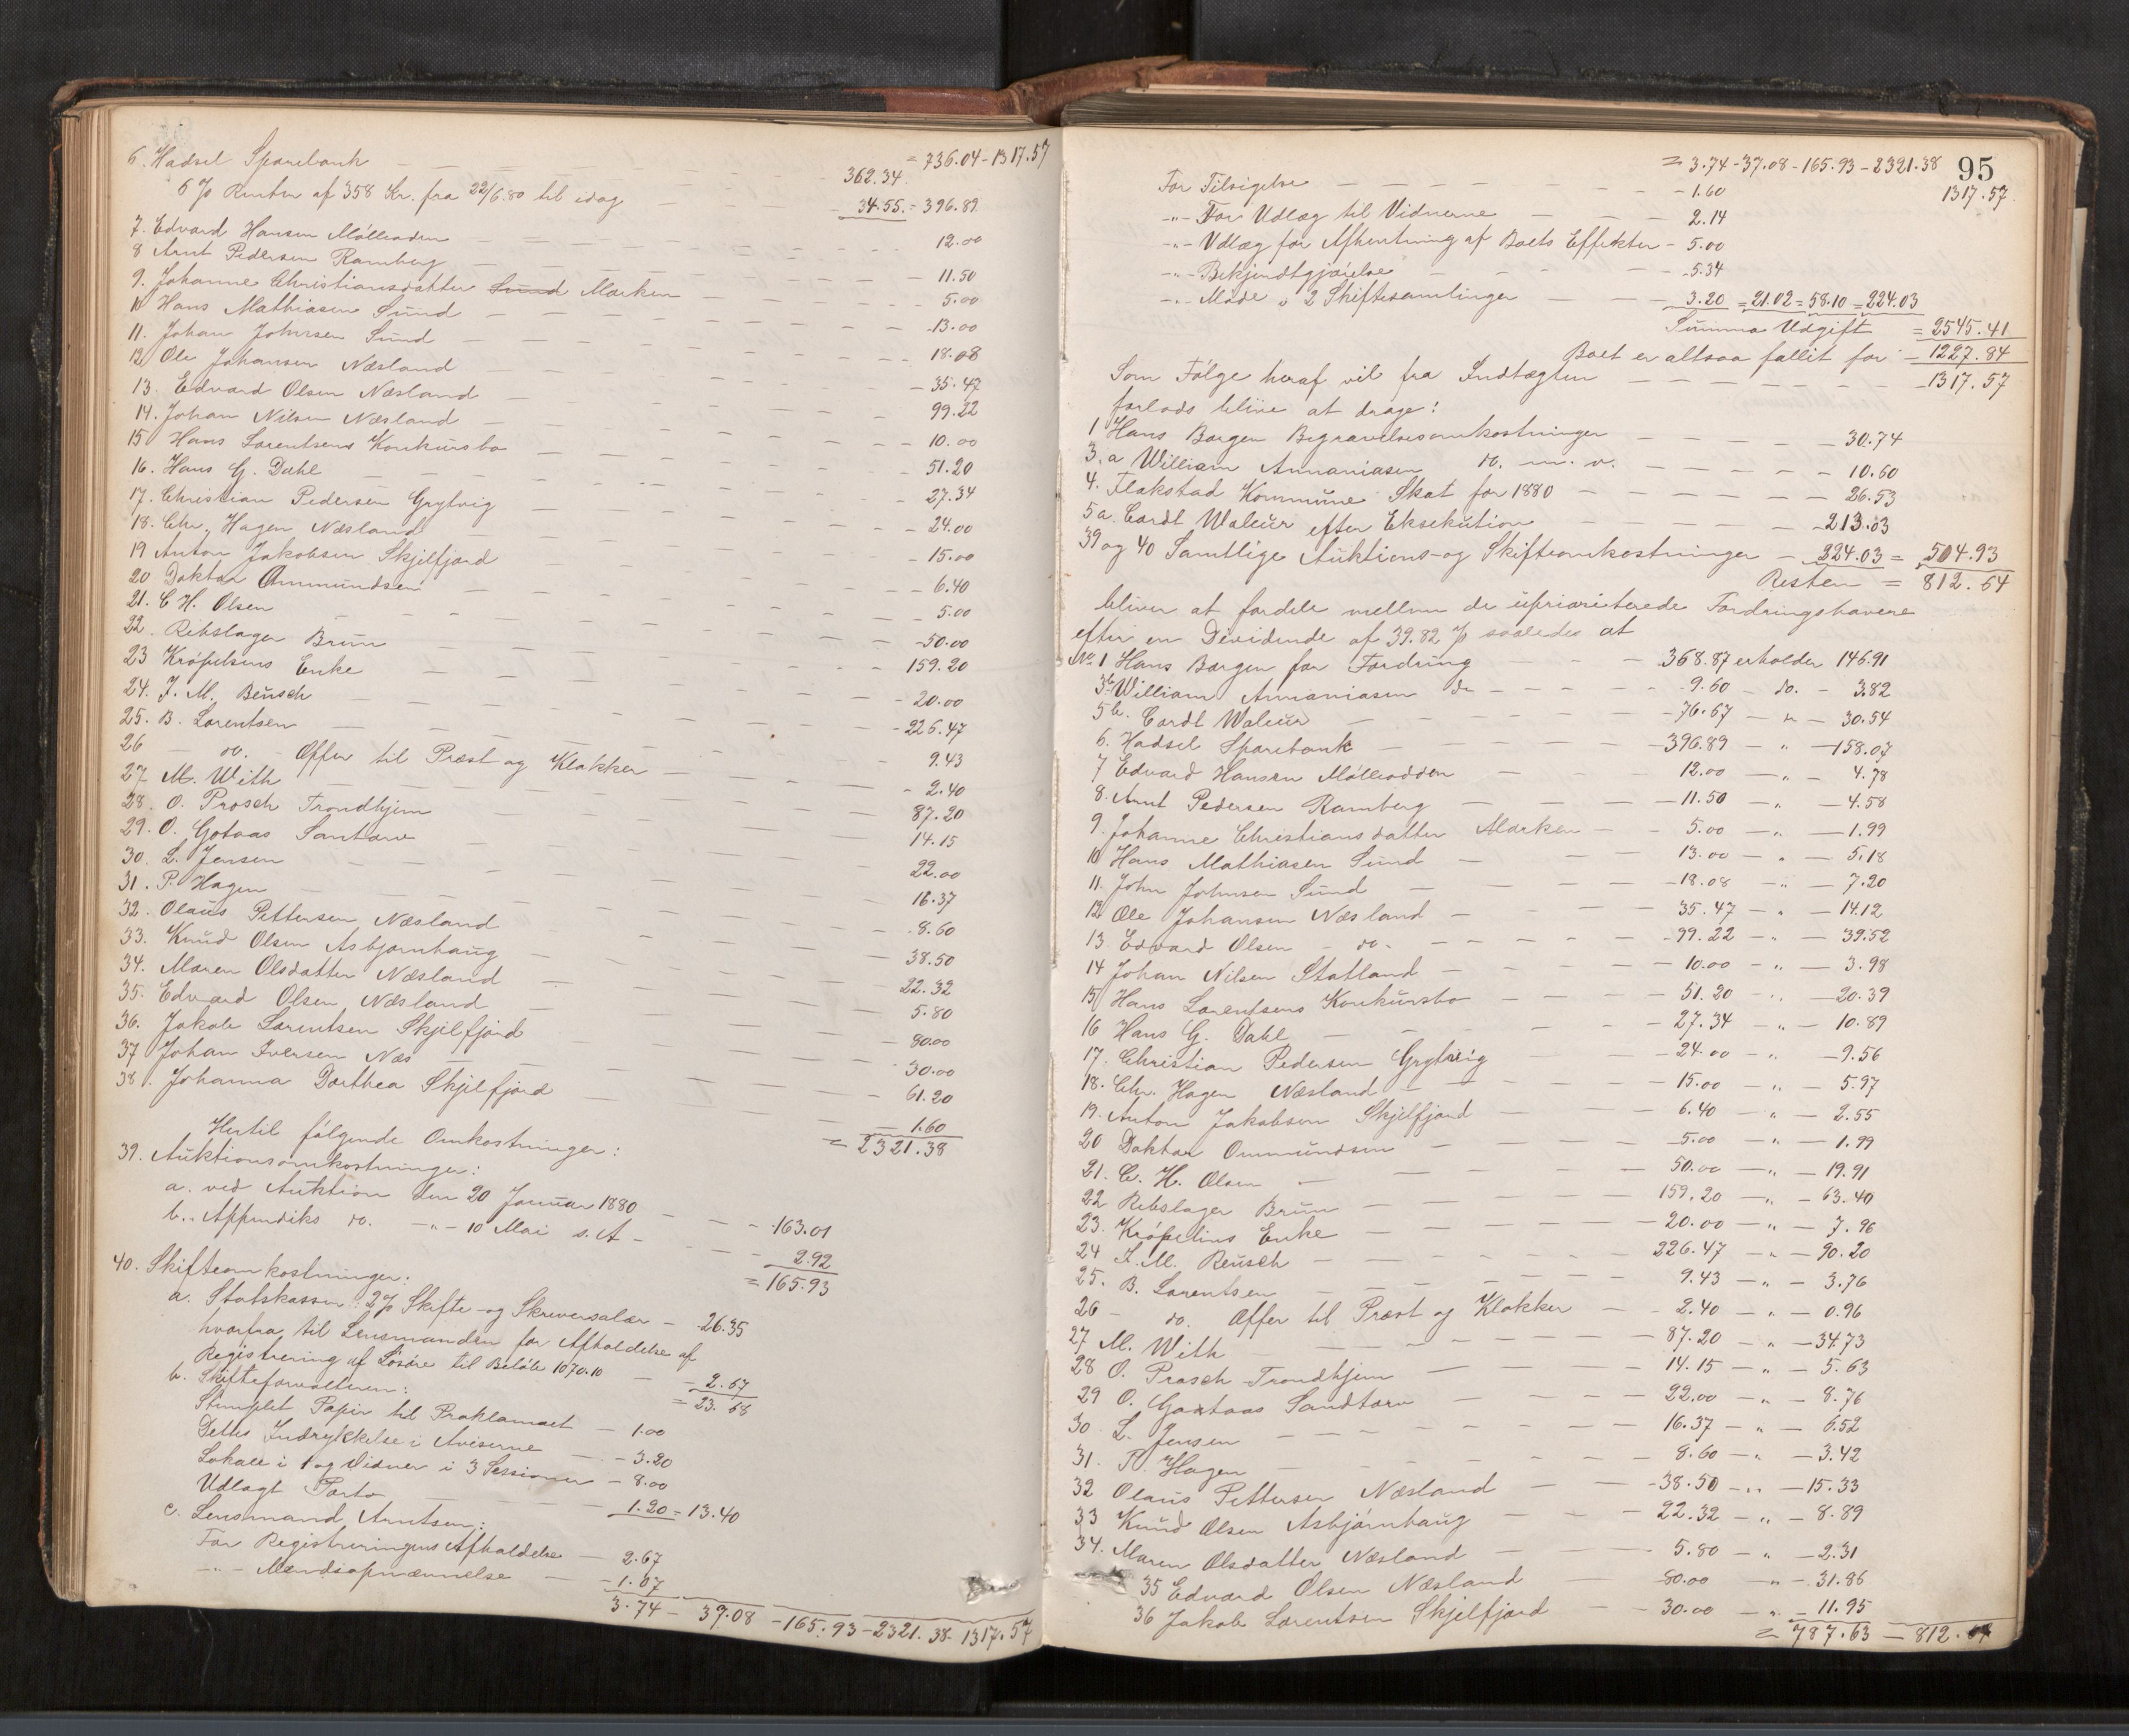 = 736.04 - 1317.57
6. Hadsel Sparebank — — — — 362.34
6 % Renter af 358 Kr. fra 22/6.80 til idag — — 34.55 = 396.89
7. Edvard Hansen Mölleodden — — — 12.00
8 Arnt Pedersen Ramberg — — — 11.50
9. Johanne Christiansdatter Sund Marken — — — 5.00
10 Hans Mathiasen Sund — — — 13.00
11. Johan Johnsen Sund — — — 18.08
12 Ole Johansen Næsland — — — 35.47
13. Edvard Olsen Næsland — — — 99.22
14. Johan Nilsen Næsland — — — 10.00
15 Hans Lorentsens Konkursbo — — — 51.20
16. Hans G. Dahl — — — 27.34
17. Christian Pedersen Grytvig — — — 24.00
18. Chr. Hagen Næsland — — — 15.00
19 Anton Jakobsen Skjelfjord — — — 6.40
20 Doktor Ommundsen — — — 5.00
21. C H. Olsen — — — 50.00
22. Rebslager Brun — — — 159.20
23 Kröpelins Enke — — — 20.00
24. J. M. Beusch — — — 226.47
25. B. Lorentsen — — — 9.43
26 — do. - Offer til Præst og Klokker — — — 2.40
27. M. With — — — 87.20
28. O. Prosch Trondhjem — — — 14.15
29. O. Gotaas Santorv — — — 22.00
30. L. Jensen — — — 16.37
31. P. Hagen — — — 8.60
32. Olaus Pettersen Næsland — — — 38.50
33. Knud Olsen Asbjørnhaug — — — 22.32
34. Maren Olsdatter Næsland — — — 5.80
35. Edvard Olsen Næsland — — — 80.00
36. Jakob Lorentsen Skjelfjord — — — 30.00
37 Johan Iversen Næs — — — 61.20
38. Johanna Dorthea Skjelfjord — — — 1.60
= 2321.38
Hertil følgende Omkostninger:
39. Auktionsomkostninger:
a. ved Auktion den 20 Januar 1880 — — — 163.01
b. " Appendiks do. — " — 10 Mai s. A — — — 2.92
= 165.93
40. Skifteomkostninger:
a. Statskassen: 2 % Skifte- og Skriversalær — 26.35
hvorfra til Lensmanden for Afholdelse af
Registrering af Løsøre til Beløb 1070.10 — — 2.67
= 23.68
b. Skifteforvalteren:
Stemplet Papir til Proklamaet — 1.00
Dettes Indrykkelse i Aviserne — 3.20
Lokale i 1 og Vidner i 3 Sessioner — 8.00
Udlagt Porto — — — 1.20 = 13.40
c. Lensmand Arntsen:
For Registreringens Afholdelse — 2.67
— " — Mændsopnævnelse — 1.07
3.74 — 39.08 — 165.93 — 2321.38 - 1317.57
= 3.74 - 37.08 - 165.93 - 2321.38
95
1317.57.
For Tilsigelse — — — 1.60
— " — For Udlæg til Vidnerne — — — 2.14
— " — Udlæg for Afhentning af Boets Effekter — 5.00
— " — Bekjendtgjørelse — — — 5.34
— " — Møde i 2 Skiftesamlinger — — 3.20 = 21.02 = 58.10 = 224.03
Summa Udgift = 2545.41
Boet er altsaa fallit for — 1227.84
Som Følge heraf vil fra Indtægten — — — 1317.57
forlods blive at drage:
1 Hans Borgen Begravelsesomkostninger — — — 30.74
3.a William Annaniasen do. m. v. — — — 10.60
4. Flakstad Kommune Skat for 1880 — — — 26.53
5a. Cordt Waleur efter Eksekution — — — 213.03
39 og 40 Samtlige Auktions- og Skifteomkostninger — 224.03 = 504.93
Resten = 812.64
bliver at fordele mellem de uprioriterede Fordringshavere
efter en Dividende af 39.82 % saaledes at
No 1 Hans Borgen for Fordring — — 368.87 erholder 146.91
3b William Annaniasen do — — — 9.60 — do. — 3.82
5b. Cordt Waleur — — — 76.67 — " — 30.54
6. Hadsel Sparebank — — — 396.89 — " — 158.07
7 Edvard Hansen Mölleodden — — — 12.00 — " — 4.78
8. Arnt Pedersen Ramberg — — — 11.50 — " — 4.58
9. Johanne Christiansdatter Marken — — 5.00 — " — 1.99
10 Hans Mathiasen Sund — — — 13.00 — " — 5.18
11. John Johnsen Sund — — — 18.08 — " — 7.20
12 Ole Johansen Næsland — — — 35.47 — " — 14.12
13. Edvard Olsen - do. — — — 99.22 — " — 39.52
14 Johan Nilsen Statland — — — 10.00 — " — 3.98
15 Hans Lorentsens Konkursbo — — — 51.20 — " — 20.39
16 Hans G. Dahl — — — 27.34 — " — 10.89
17. Christian Pedersen Grytvig — 24.00 — " — 9.56
18. Chr. Hagen Næsland — — 15.00 — " — 5.97
19. Anton Jakobsen Skjelfjord — — 6.40 — " — 2.55
20 Doktor Ommundsen — — — 5.00 — " — 1.99
21. C. H. Olsen — — — 50.00 — " — 19.91
22 Rebslager Brun — — — 159.20 — " — 63.40
23. Kröpelins Enke — — — 20.00 — " — 7.96
24 J. M. Beusch — — — 226.47 — " — 90.20
25. B. Lorentsen — — — 9.43 — " — 3.76
26 — do. Offer til Præst og Klokker — — 2.40 — " — 0.96
27 M. With — — — 87.20 — " — 34.73
28 O. Prosch Trondhjem — — — 14.15 — " — 5.63
29 O. Gotaas Sandtorv — — — 22.00 — " — 8.76
30 L. Jensen — — — 16.37 — " — 6.52
31. P. Hagen — — — 8.60 — " — 3.42
32 Olaus Pettersen Næsland — — 38.50 — " — 15.33
33 Knud Olsen Asbjørnhaug — — 22.32 — " — 8.89
34. Maren Olsdatter Næsland — — 5.80 — " — 2.31
35 Edvard Olsen Næsland — 80.00 — " — 31.86
36 Jakob Lorentsen Skjelfjord — — 30.00 — " — 11.95
= 787.63 — 812.64